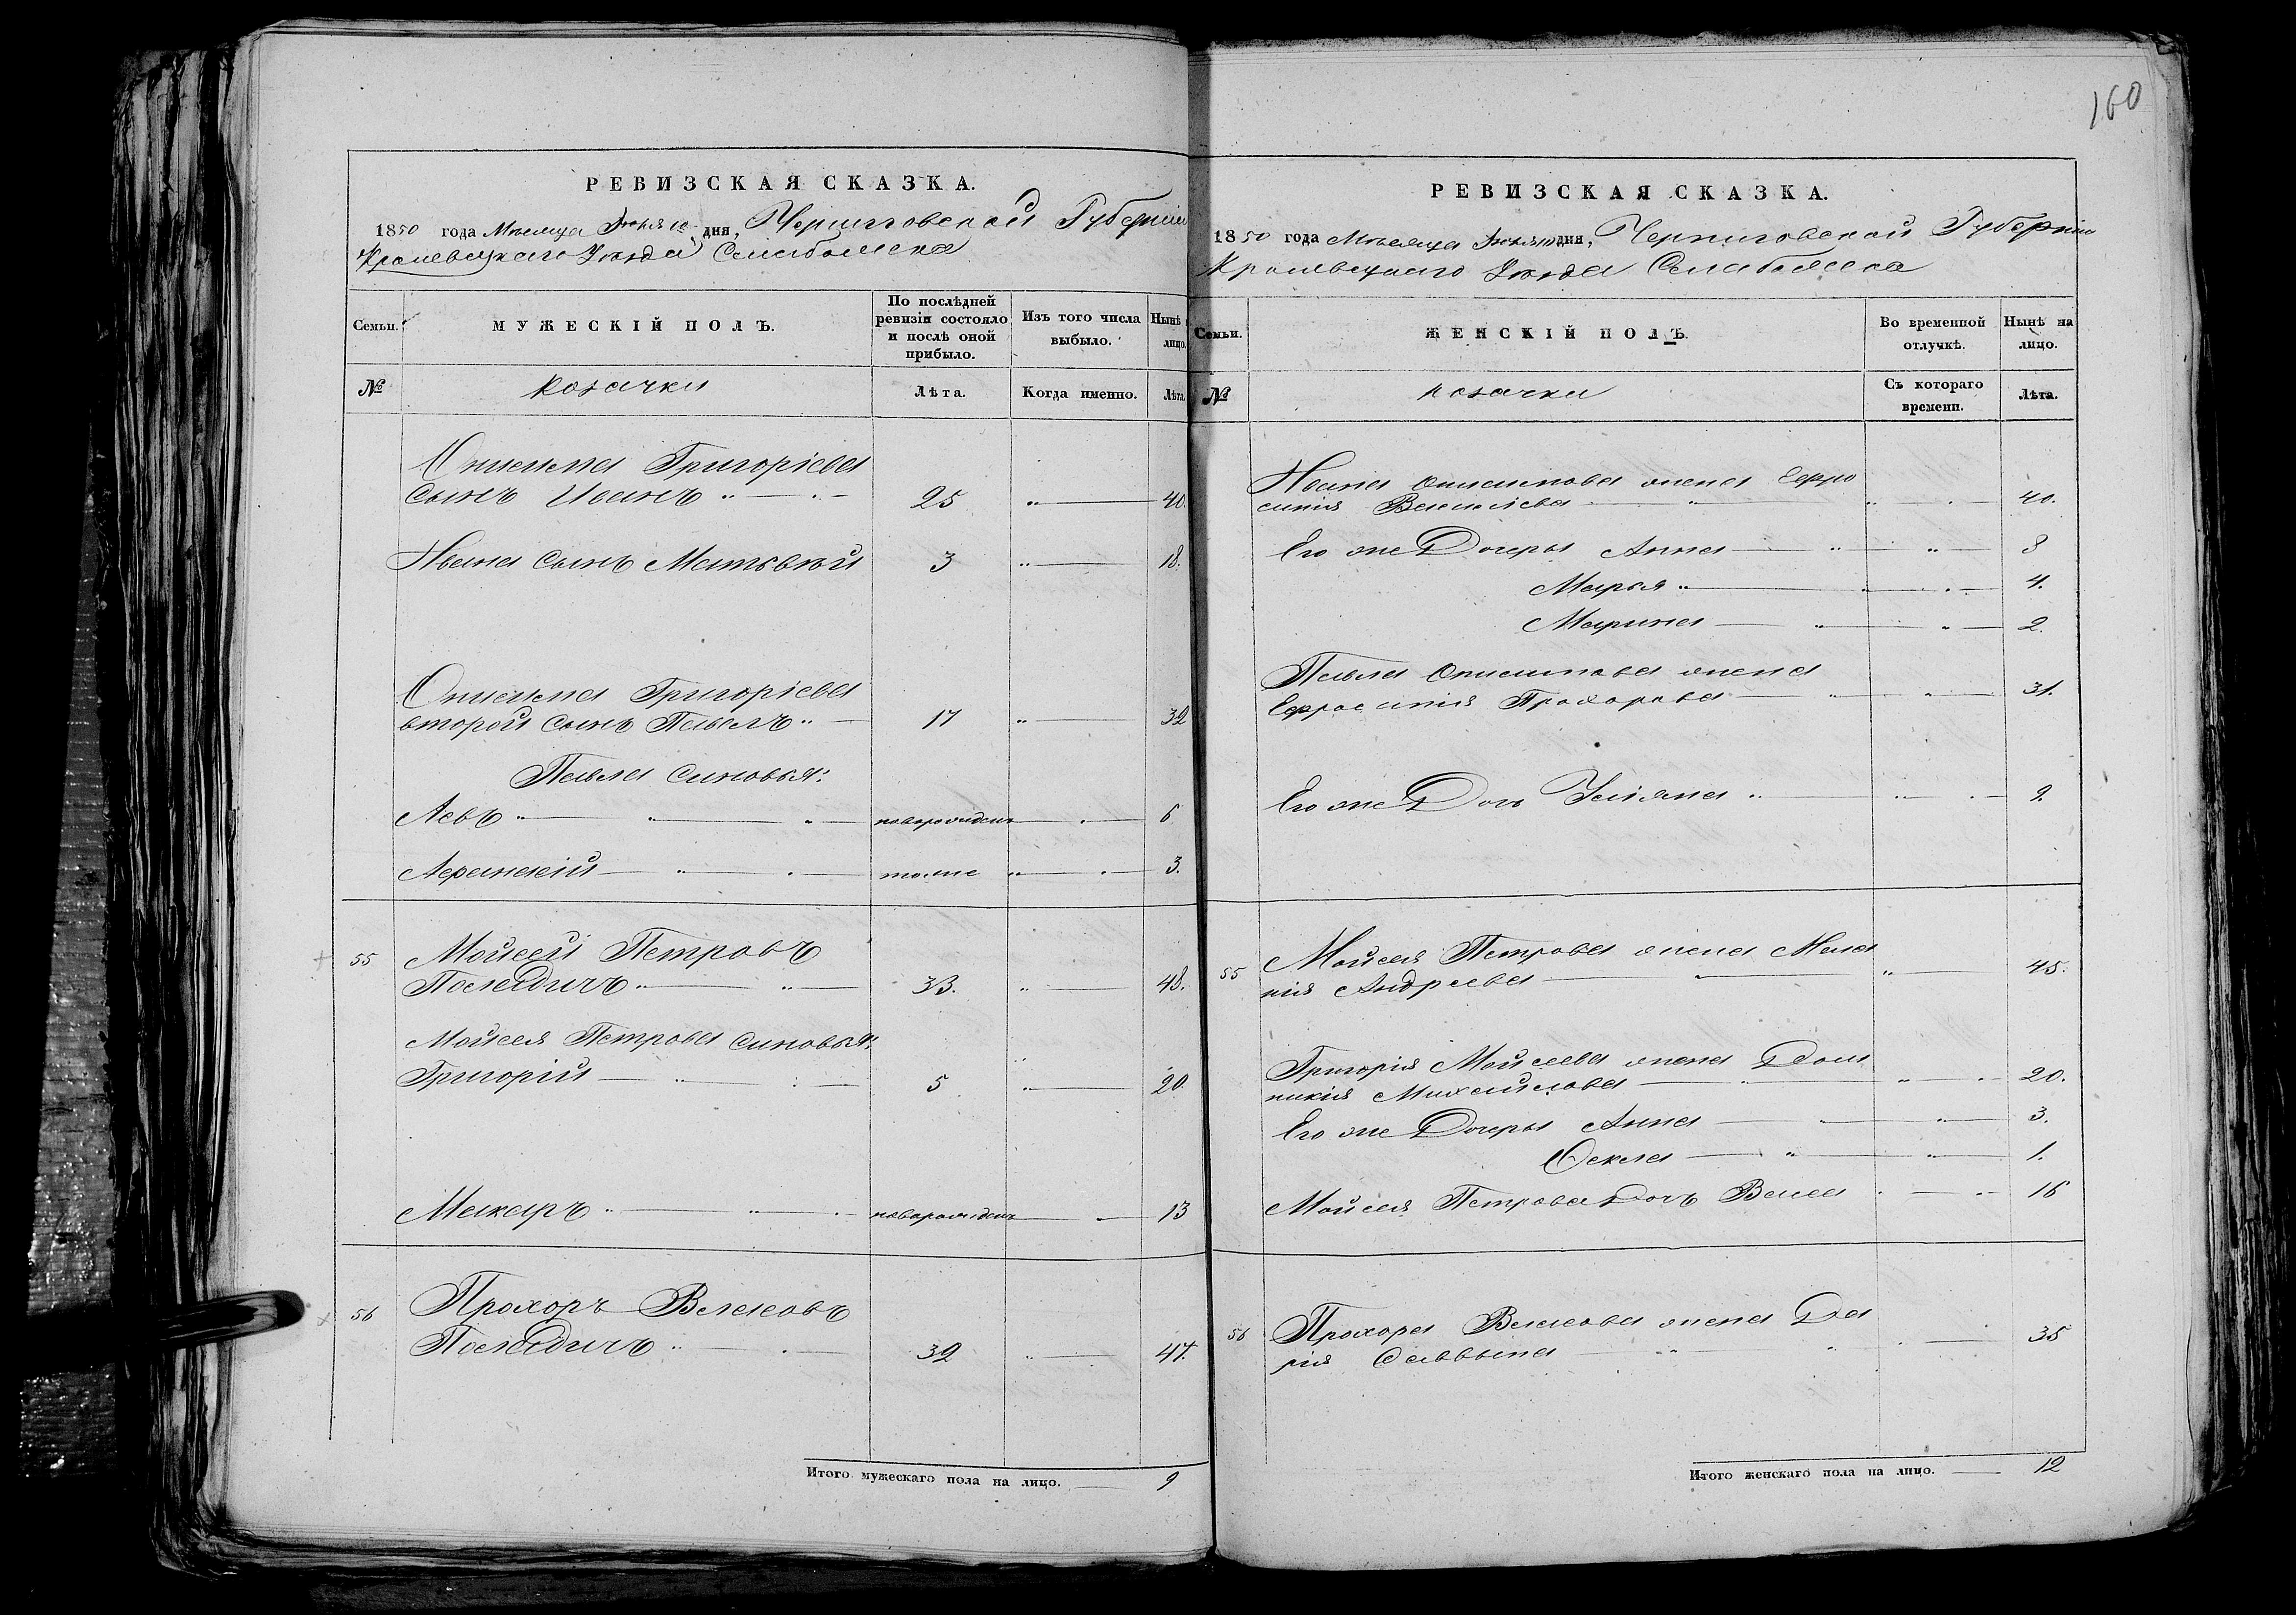 160
РЕВИЗСКАЯ СКАЗКА.
1850 года Мѣсяца дня, Черниговской Губерніи
Кролевецкаго Уѣзда Села
Семьи.
МУЖЕСКІЙ ПОЛЪ.
По послѣдней ревизіи состояло и послѣ оной прибыло.
Изъ того числа выбыло.
Нынѣ лицо.
№
козачки
Лѣта.
Когда именно.
Лѣта.
Григоріева
сынъ Иванъ 25 40.
Ивана сынъ Матвѣй 3 18.
Григоріева
второй сынъ Павелъ 17 32
Павла синовья:
Левъ новорожденъ 6
Афанасій тоже 3.
55 Мойсей Петровъ
33. 48.
Мойсея Петрова синовья:
Григорій 5 20
Макаръ новорожденъ 13
56 Прохоръ Власовъ
32 47.
Итого мужескаго пола на лицо. 9
РЕВИЗСКАЯ СКАЗКА.
1850 года Мѣсяца дня, Черниговской Губерніи
Кролевецкаго Уѣзда Села
Семьи.
ЖЕНСКІЙ ПОЛЪ.
Во временной отлучкѣ.
Нынѣ на лицо.
№
козачки
Съ котораго времени.
Лѣта.
Ивана Онисимова жена Евфро
синія Василіева 40.
Его же Дочеры Анна 8
Марья 4.
Марина 2.
Павла Онисимова жена
Ефросинія Прохорова 31.
Его же Дочь Уліяна 2.
55 Мойсея Петрова жена Мела
нія Андреева 45.
Григорія Мойсеева жена Дом
никія Михайлова 20.
Его же Дочеры Анна 3.
Ѳекла 1.
Мойсея Петрова Дочь Васса 16
56 Прохора Власова жена Да
рія Саввына 35
Итого женскаго пола на лицо. 12